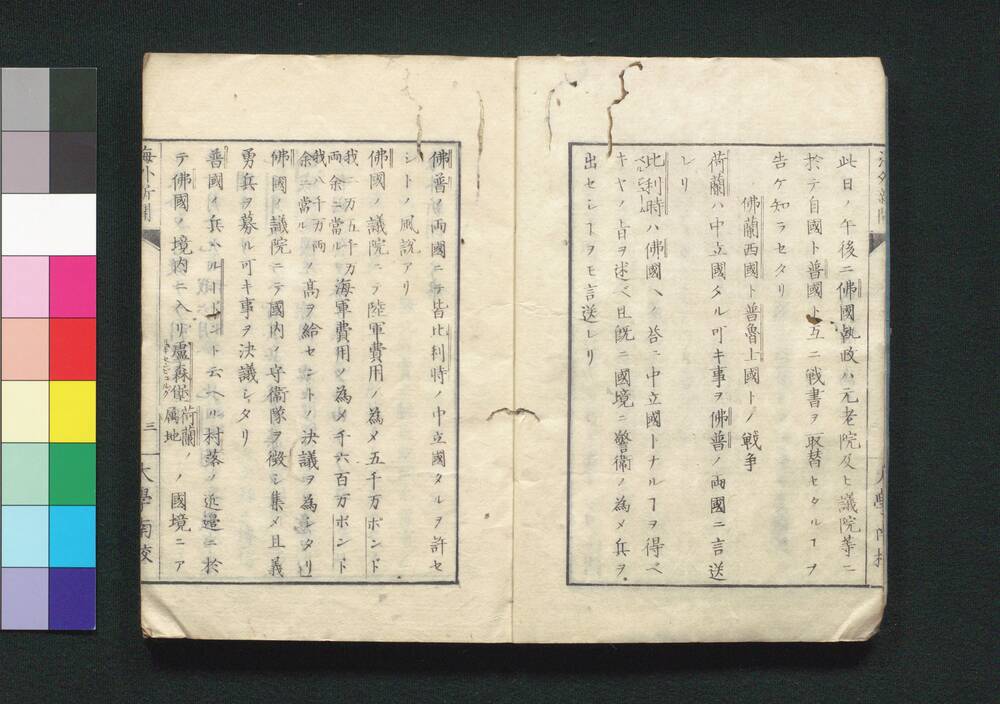 此日ノ午後ニ佛國執政ハ元老院及ヒ議院等ニ
於テ自國ト普國ト互ニ戦書ヲ取替セタルヿヲ
告ケ知ラセタリ
佛蘭西國ト普魯士國トノ戦争
荷蘭ハ中立國タル可キ事ヲ佛普ノ両國ニ言送
レリ
比利時ハ佛國ヘノ荅ニ中立國トナルヿヲ得ベ
キヤノ旨ヲ述ベ且既ニ國境ニ警衛ノ為メ兵ヲ
出セシヿヲモ言送レリ
佛普ノ両國ニテ皆比利時ノ中立國タルヲ許セ
シトノ風説アリ
佛國ノ議院ニテ陸軍費用ノ為メ五千万ポンド
我二万五千万両余ニ當ル海軍費用ノ為メ千六百万ポンド
我八千万両余ニ當ルノ高ヲ給セントノ決議ヲ為シタリ
佛國ノ議院ニテ國内ノ守衛隊ヲ徴シ集メ且義
勇兵ヲ募ル可キ事ヲ決議シタリ
普國ノ兵ハ ント云ヘル村落ノ近邉ニ於
テ佛國ノ境内ニ入リ盧森堡荷蘭属地ノ國境ニア
海外新聞
三
大學南校